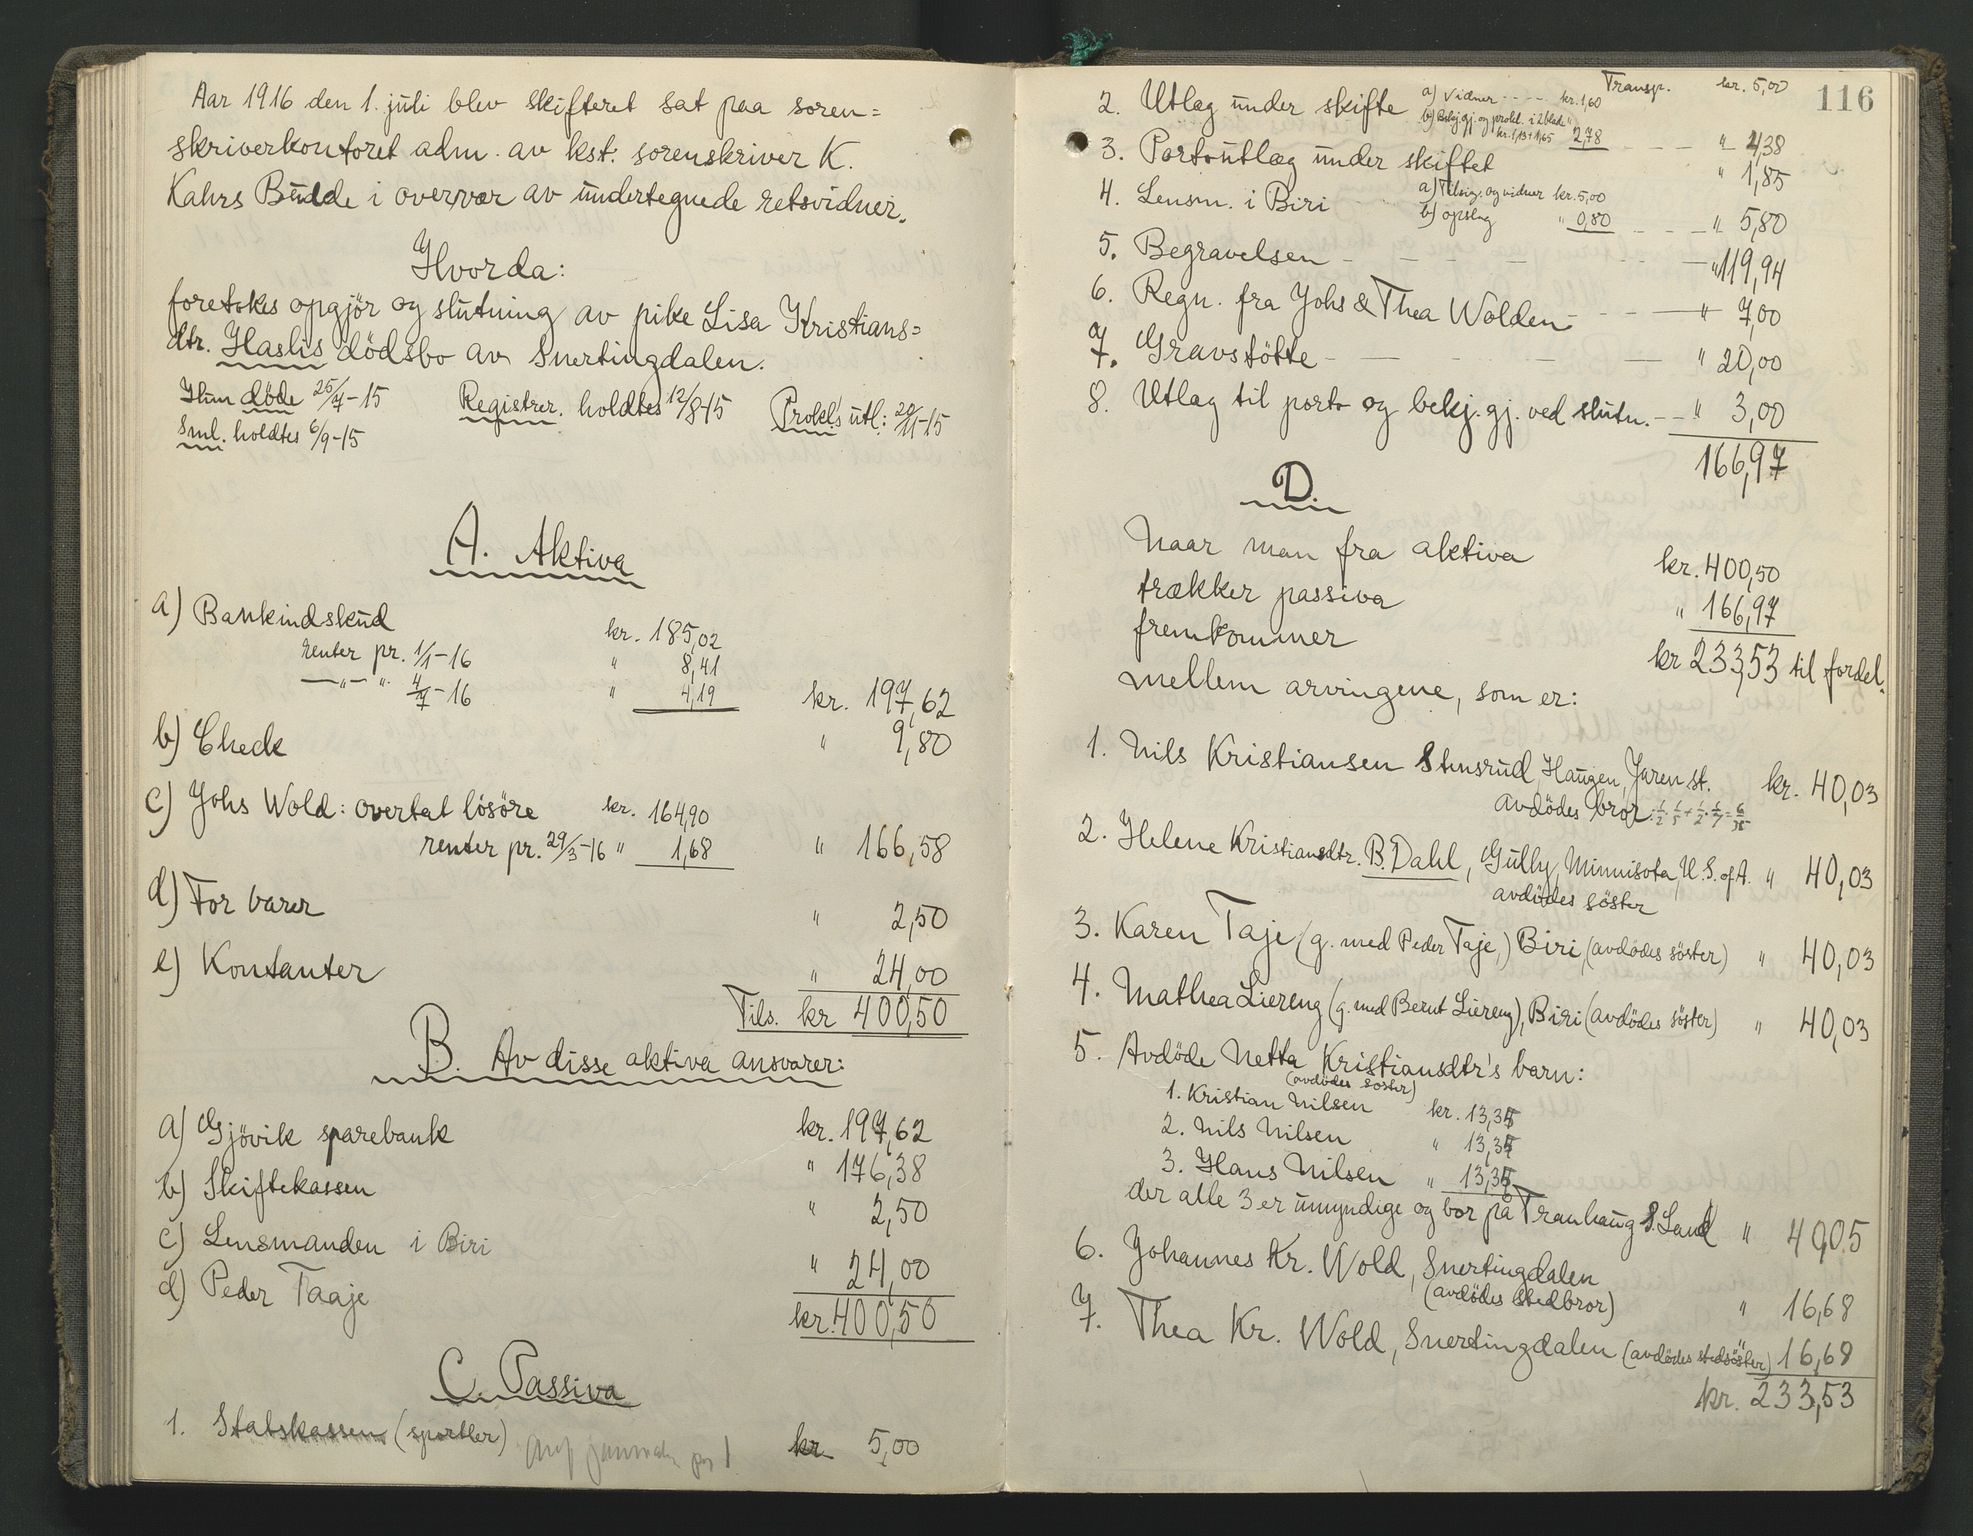 Aar 1916 den 1. juli blev skifteret sat paa soren=
skriverkontoret adm. av kst. sorenskriver K.
Kahrs Budde i overvær av undertegnede retsvidner.
Hvorda:
foretokes opgjör og slutning av pike Lisa Kristians=
dtr. Haslis dödsbo av Snertingdalen.
Hun döde 25/7-15 Registrer. holdtes 12/8-15 Prokl's utl: 20/11-15
Sml. holdtes 6/9-15
A. Aktiva
a) Bankindskud kr. 185,02
renter pr. 1/1-16 " 8,41
—"— " 4/7-16 " 4,19 kr. 197,62
b) Check " 9,80
c) Johs Wold: overtat lösöre kr. 164,90
renter pr. 29/3-16 " 1,68 " 166,58
d) For varer " 2,50
e) Kontanter " 24,00
Tils. kr 400,50
B. Av disse aktiva ansvarer:
a) Gjövik sparebank kr. 197,62
b) Skiftekassen " 176,38
c) Lensmanden i Biri " 2,50
d) Peder Taaje " 24,00
kr. 400,50
C. Passiva
1. Statskassen (sportler) kr 5,00
116
Transp. kr. 5,00
2. Utlæg under skifte a) Vidner - - - - kr. 1,60
b) Bekj.gj. og prokl. i 2 blade "
kr. 1,13 + 1,65 2,78 - - - " 4,38
3. Portoutlæg under skiftet " 1,85
4. Lensm. i Biri a) Tilsig. og vidner kr. 5,00
b) opslag " 0,80 - - - " 5,80
5. Begravelsen - - - - - - " 119,94
6. Regn. fra Johs & Thea Wolden - - - " 7,00
7. Gravstötte - - - - - " 20,00
8. Utlæg til porto og bekj.gj. ved slutn. - - " 3,00
166,97
D.
Naar man fra aktiva kr. 400,50
trækker passiva " 166,97
fremkommer kr 233,53 til fordel.
mellem arvingene, som er:
1. Nils Kristiansen Stensrud, Haugen, Jaren st. kr. 40,03
avdödes bror
2. Helene Kristiansdtr. B. Dahl, Gully, Minnisota, U.S. of A. " 40,03
avdödes söster
3. Karen Taje (g. med Peder Taje,) Biri (avdödes söster) " 40,03
4. Mathea Liereng (g. med Bernt Liereng), Biri (avdödes söster) " 40,03
5. Avdöde Netta Kristiansdtr's barn:
(avdödes söster)
1. Kristian Nilsen kr. 13,35
2. Nils Nilsen " 13,35
3. Hans Nilsen " 13,35
der alle 3 er umyndige og bor på Tranhaug S. Land " 40,05
6. Johannes Kr. Wold, Snertingdalen
(avdödes stedbror) " 16,68
7. Thea Kr. Wold, Snertingdalen (avdödes stedsöster) " 16,68
kr. 233,53